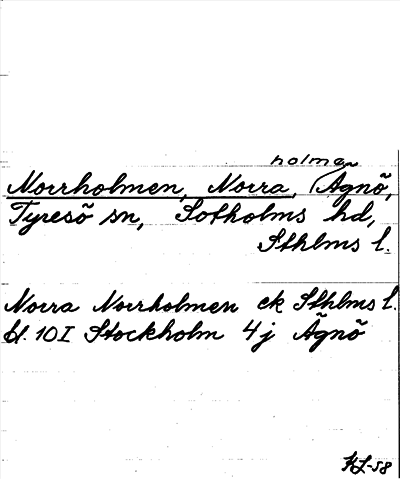 holme
Norrholmen, Norra, (Ägnö,
Tyresö sn, Sotholms hd,
Sthlms l.
Norra Norrholmen ek Sthlms l.
bl. 10I Stockholm 4j Ägnö
KL-58